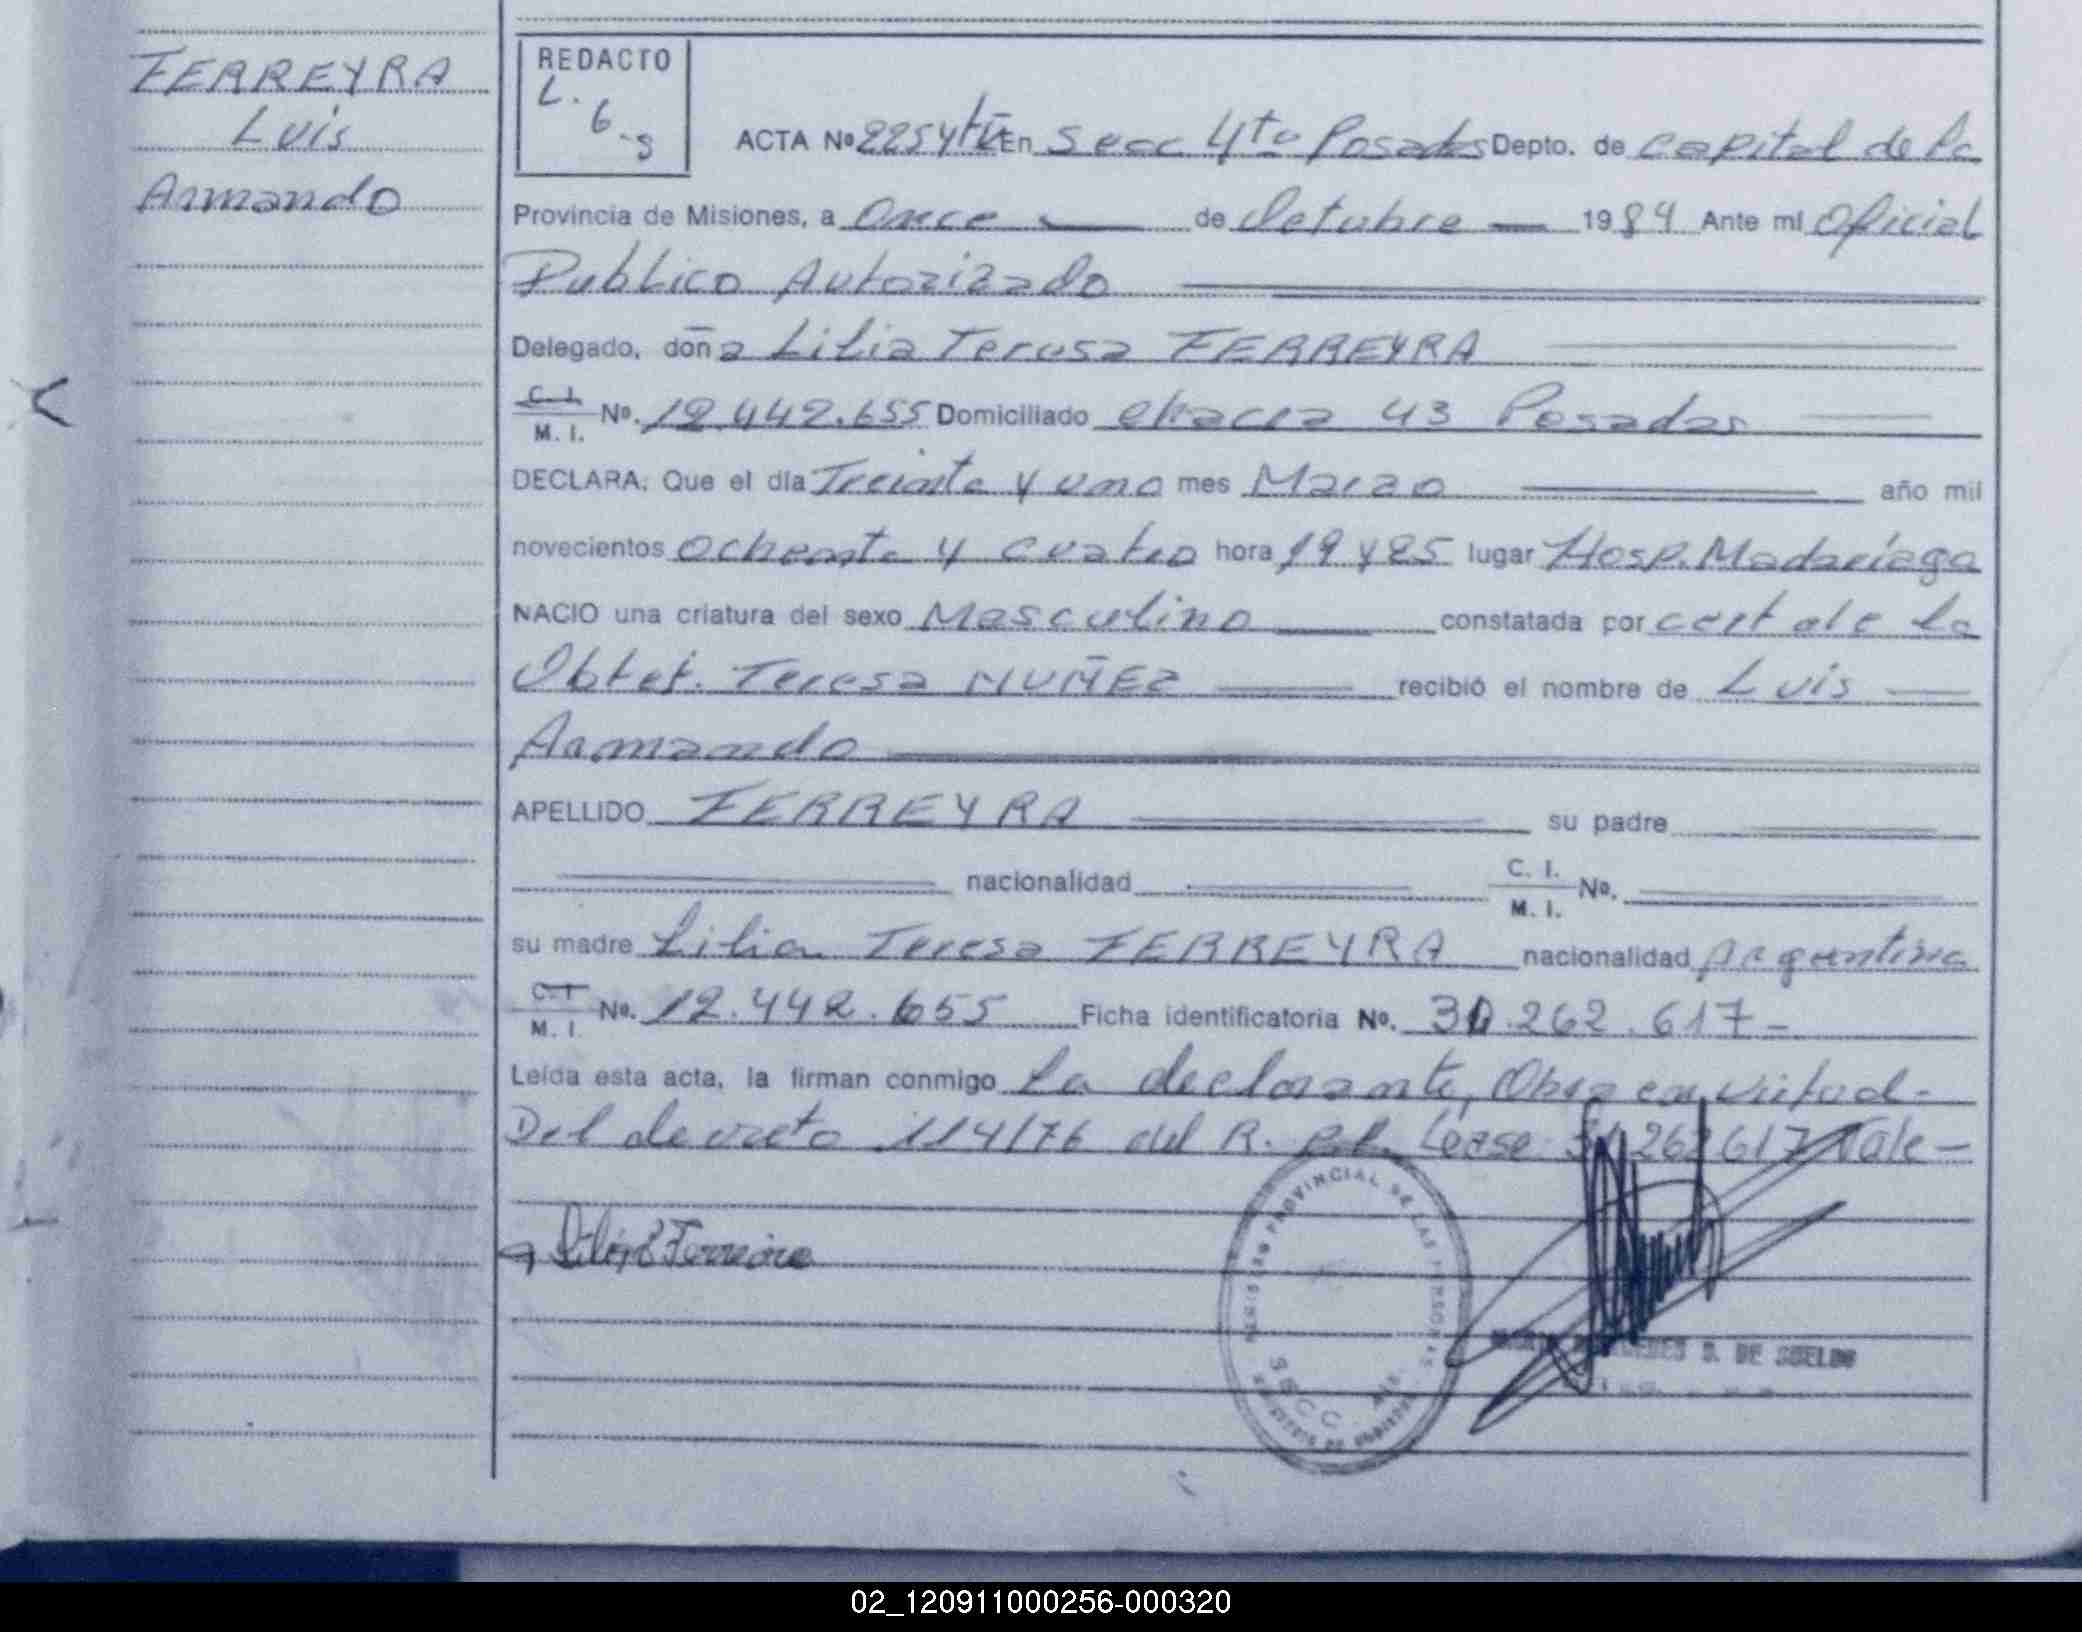 FERREYRA
Luis
Armando
REDACTO
L.
6
.s
ACTA Nº 2254 En Secc 4ta Posadas Depto. de Capital de la
Provincia de Misiones, a Once de Octubre 1984 Ante mí Oficial
Publico Autorizado
Delegado, doña Lilia Teresa FERREYRA
C. I.
M. I. Nº. 12.442.655 Domiciliado chacra 43 Posadas
DECLARA: Que el día Treinta y uno mes Marzo año mil
novecientos Ochenta y Cuatro hora 19 y 25 lugar Hosp. Madariaga
NACIO una criatura del sexo Masculino constatada por cert de la
Obtet. Teresa NUÑEZ recibió el nombre de Luis
Armando
APELLIDO FERREYRA su padre
nacionalidad C. I.
M. I. Nº.
su madre Lilia Teresa FERREYRA nacionalidad Argentina
C. I.
M. I. Nº. 12.442.655 Ficha identificatoria Nº. 31.262.617-
Leída esta acta, la firman conmigo La declarante, Obra en virtud-
Del decreto 114/76 del R. Lease 31.262617 Vale-
REGISTRO PROVINCIAL DE LAS PERSONAS
SECC.
MINISTERIO DE GOBIERNO
S. DE SUELDO
02_120911000256-000320